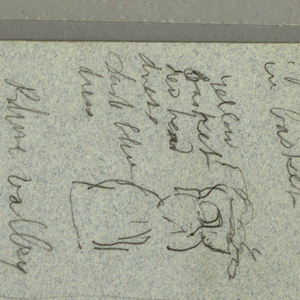 in basket
yellow
basket
red head
dress
dark blue
dress
Rhone valley